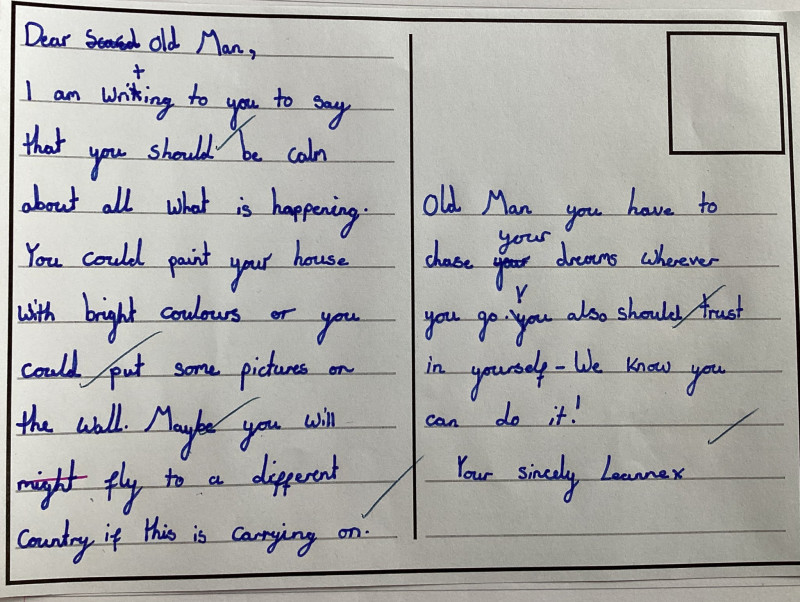 Dear Old Man,
I am writing to you to say
that you should be calm
about all what is happening.
You could paint your house
with bright coulours or you
could put some pictures on
the wall. Maybe you will
might fly to a different
Country if this is carrying on.
Old Man you have to
chase your dreams wherever
you go. You also should trust
in yourself - We know you
can do it!
Your sincely Leannex